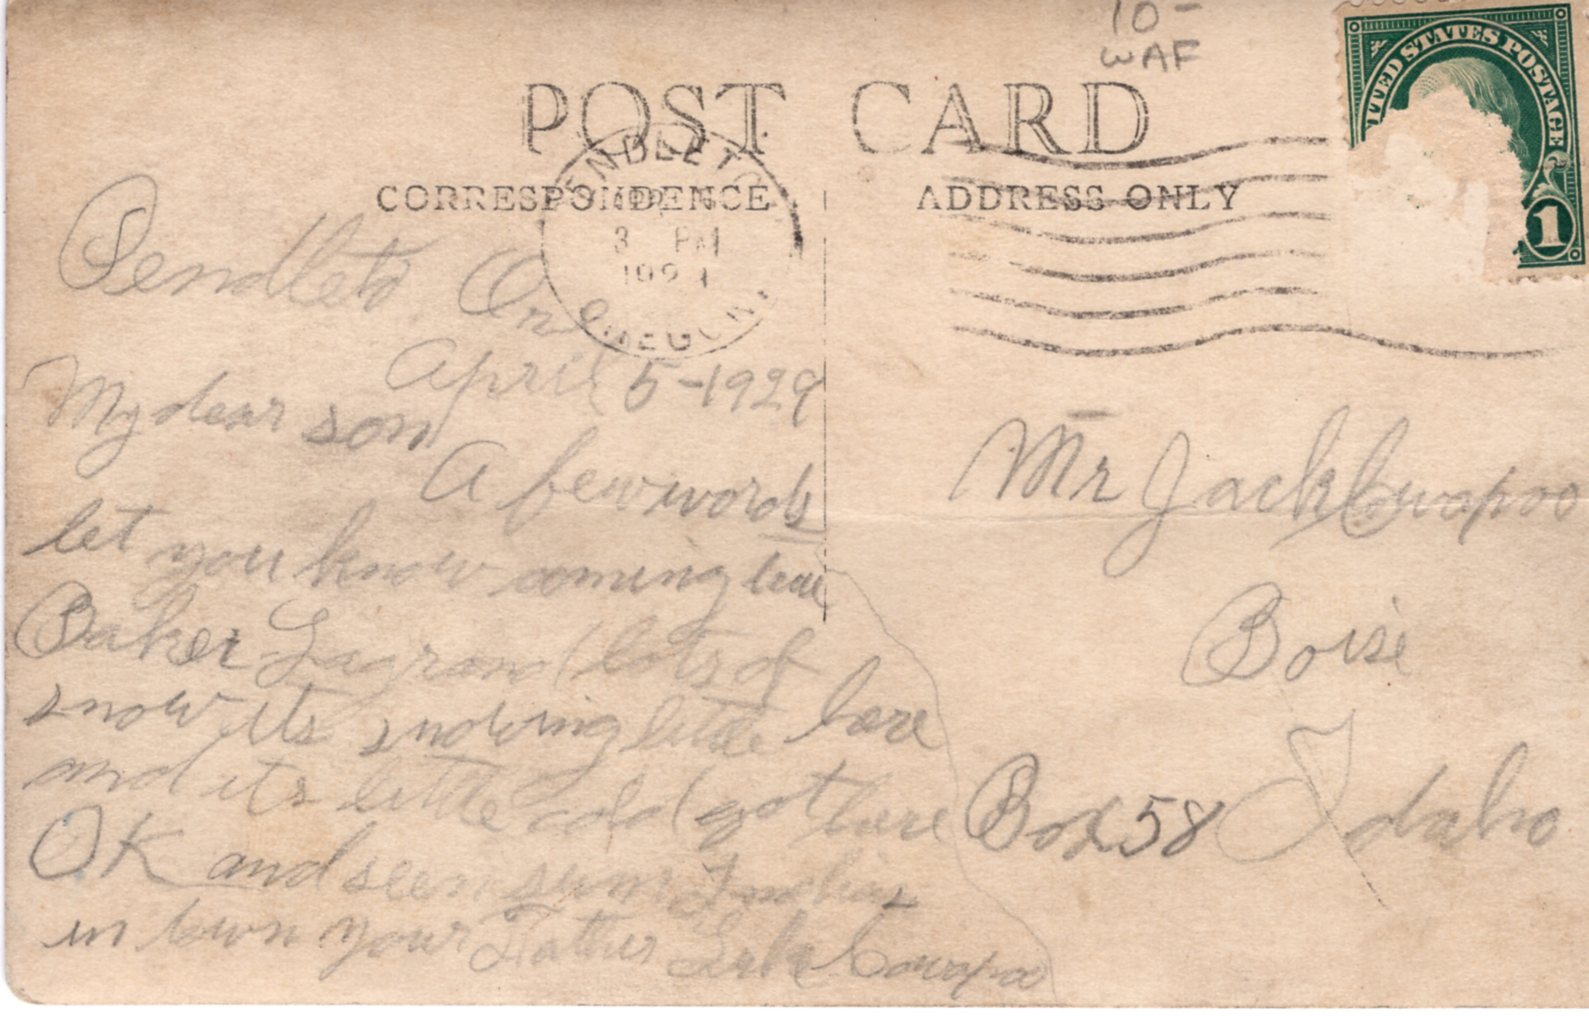 10-
WAF
POST CARD
CORRESPONDENCE
ADDRESS ONLY
UNITED STATES POSTAGE
1
3 PM
OREGON
Pendleto Ore
April 5-1929
My dear son
A few words
let you know coming
Baker Lagrand lots of
snow its snowing little here
and its little cold got here
OK and seen sum Indians
in town your Father
Mr Jack Cowapoo
Boise
Box 58 Idaho